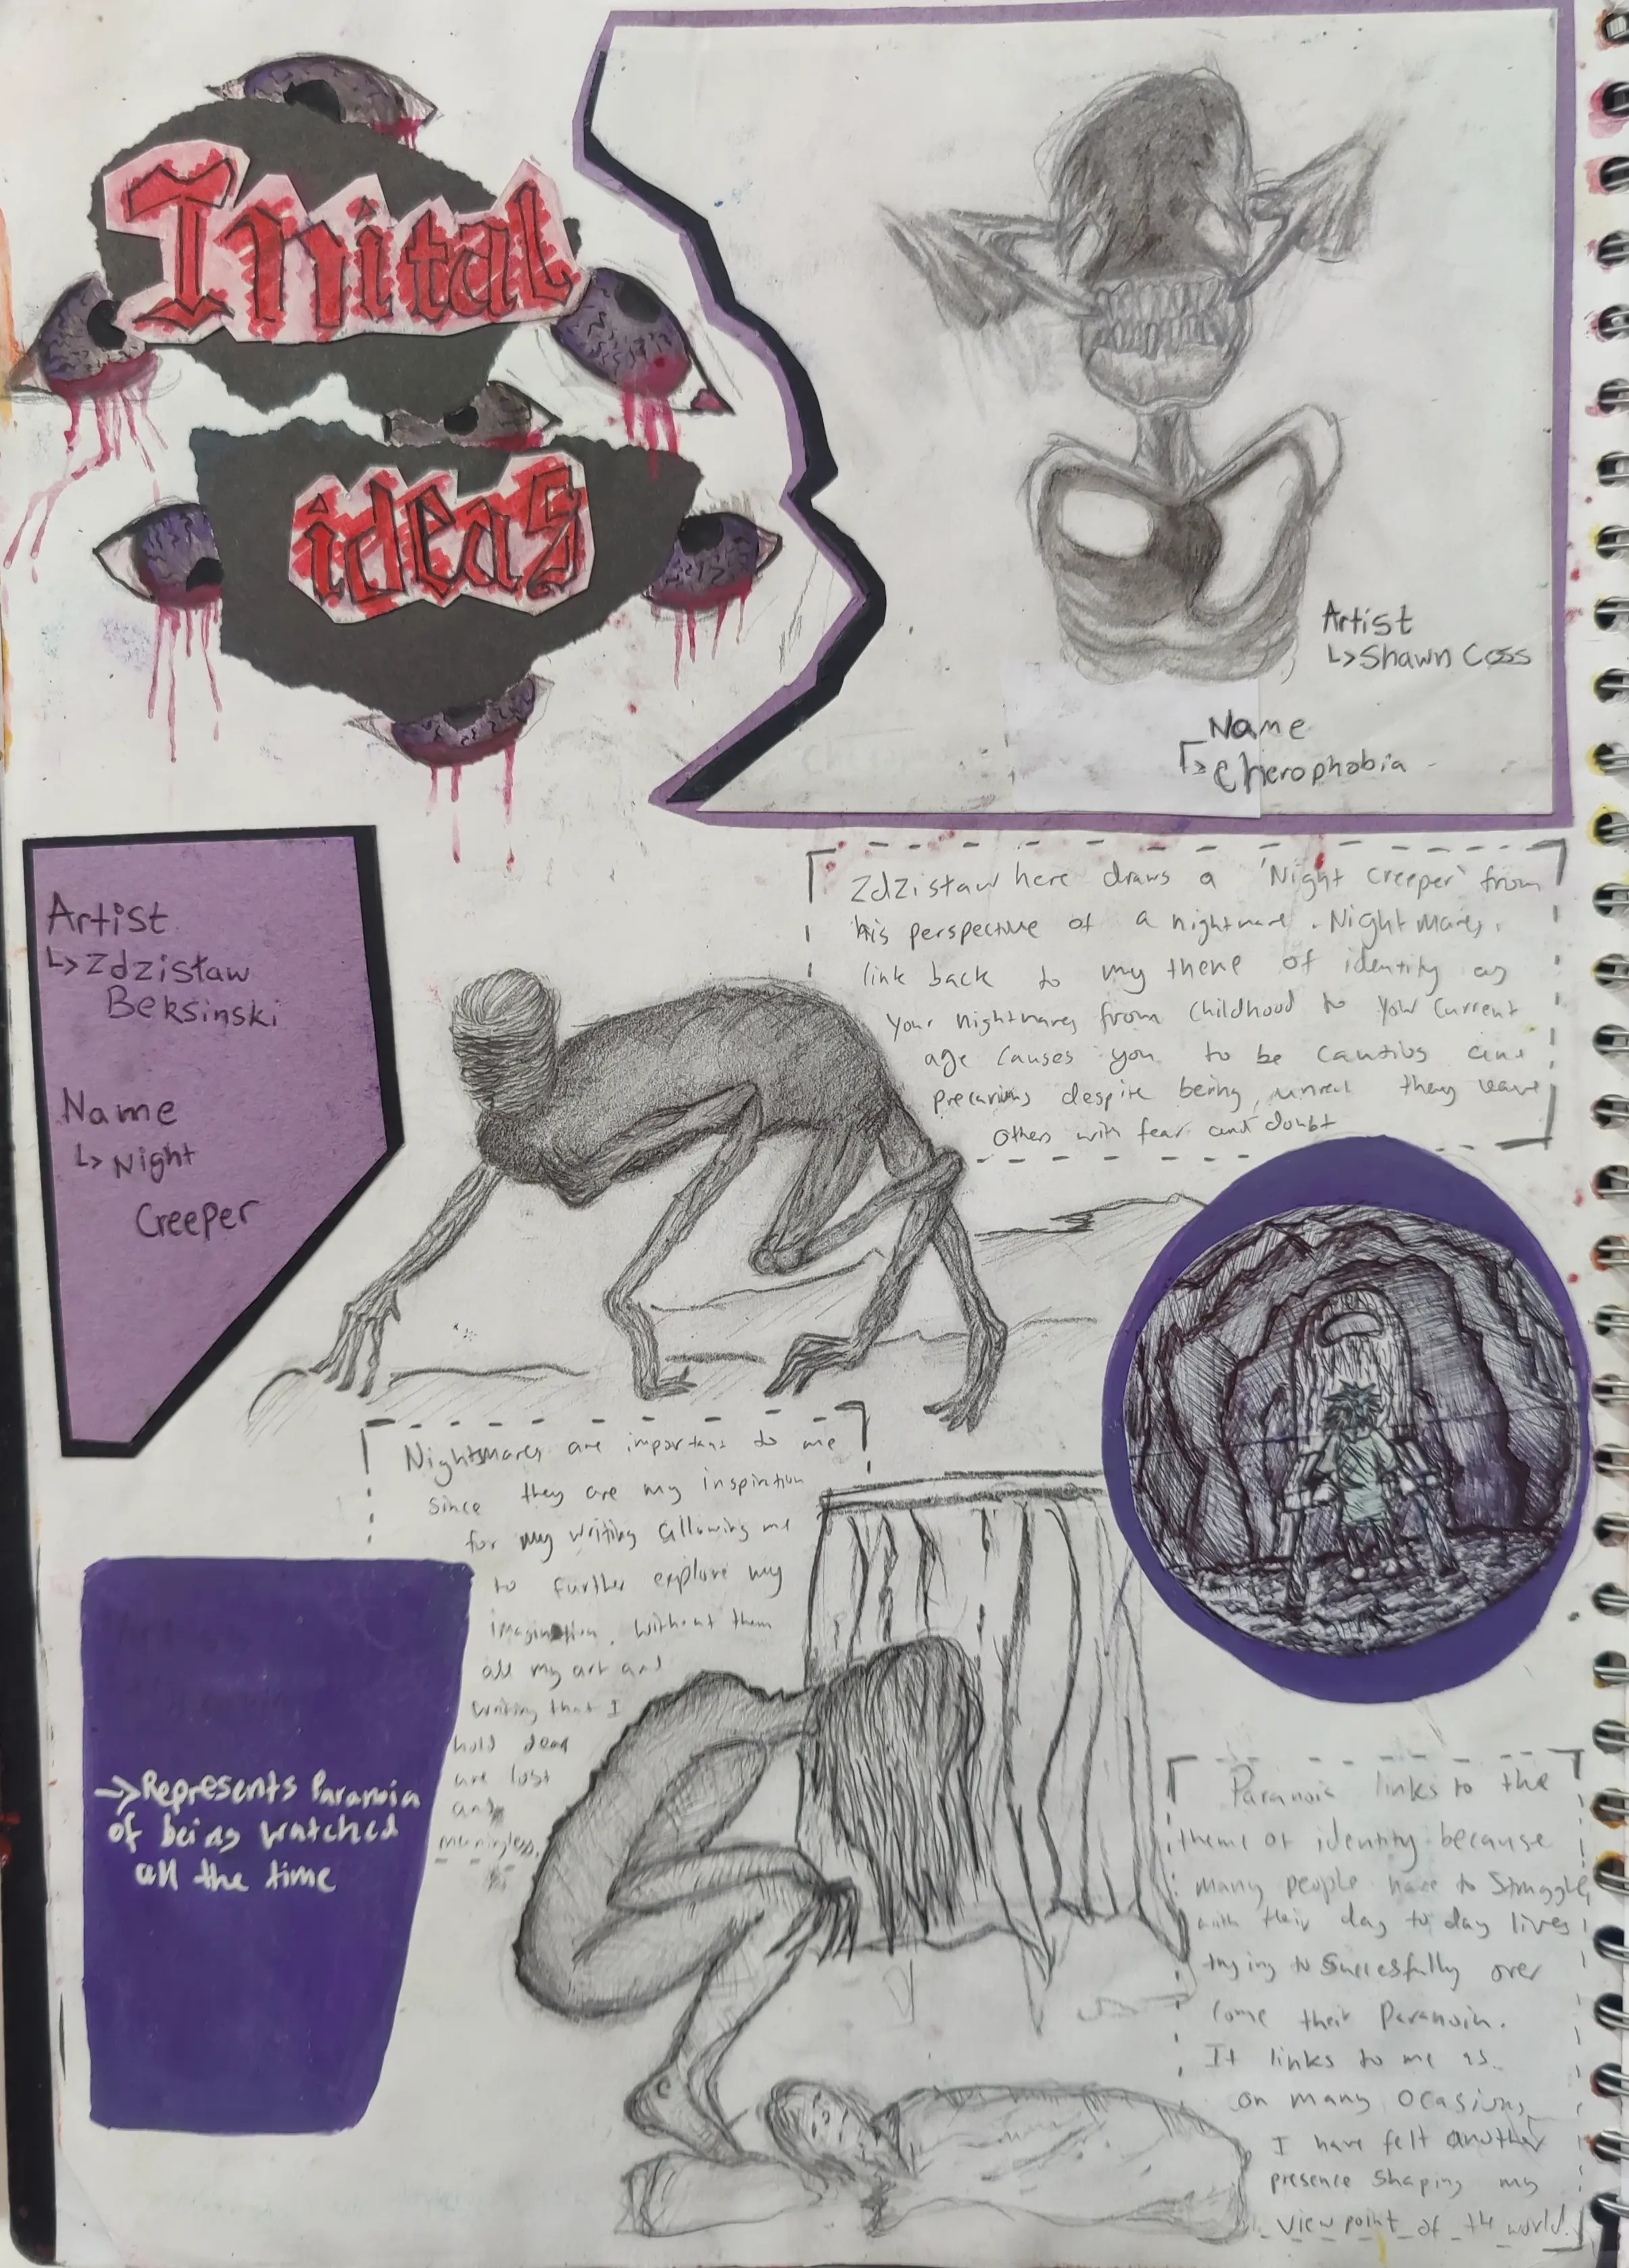 Inital
ideas
Artist
↳ Shawn Coss
Name
↳ Cherophobia
Artist
↳ Zdzistaw
Beksinski
Name
↳ Night
Creeper
Zdzistaw here draws a 'Night Creeper' from
his perspective of a nightmare. Nightmares
link back to my theme of identity as
your nightmares from childhood to your current
age causes you to be
despite being unreal they leave
others with fear and doubt
Nightsmares are important to me
since they are my inspiration
for my writing allowing me
to further explore my
imagination. Without them
all my art and
writing that I
hold dear
are lost
and
meaningless.
→ Represents Paranoia
of being watched
all the time
Paranoia links to the
theme of identity because
many people have to struggle
with their day to day lives
trying to succesfully over
come their Paranoia.
It links to me as
on many ocasions
I have felt another
presence shaping my
view point of the world.